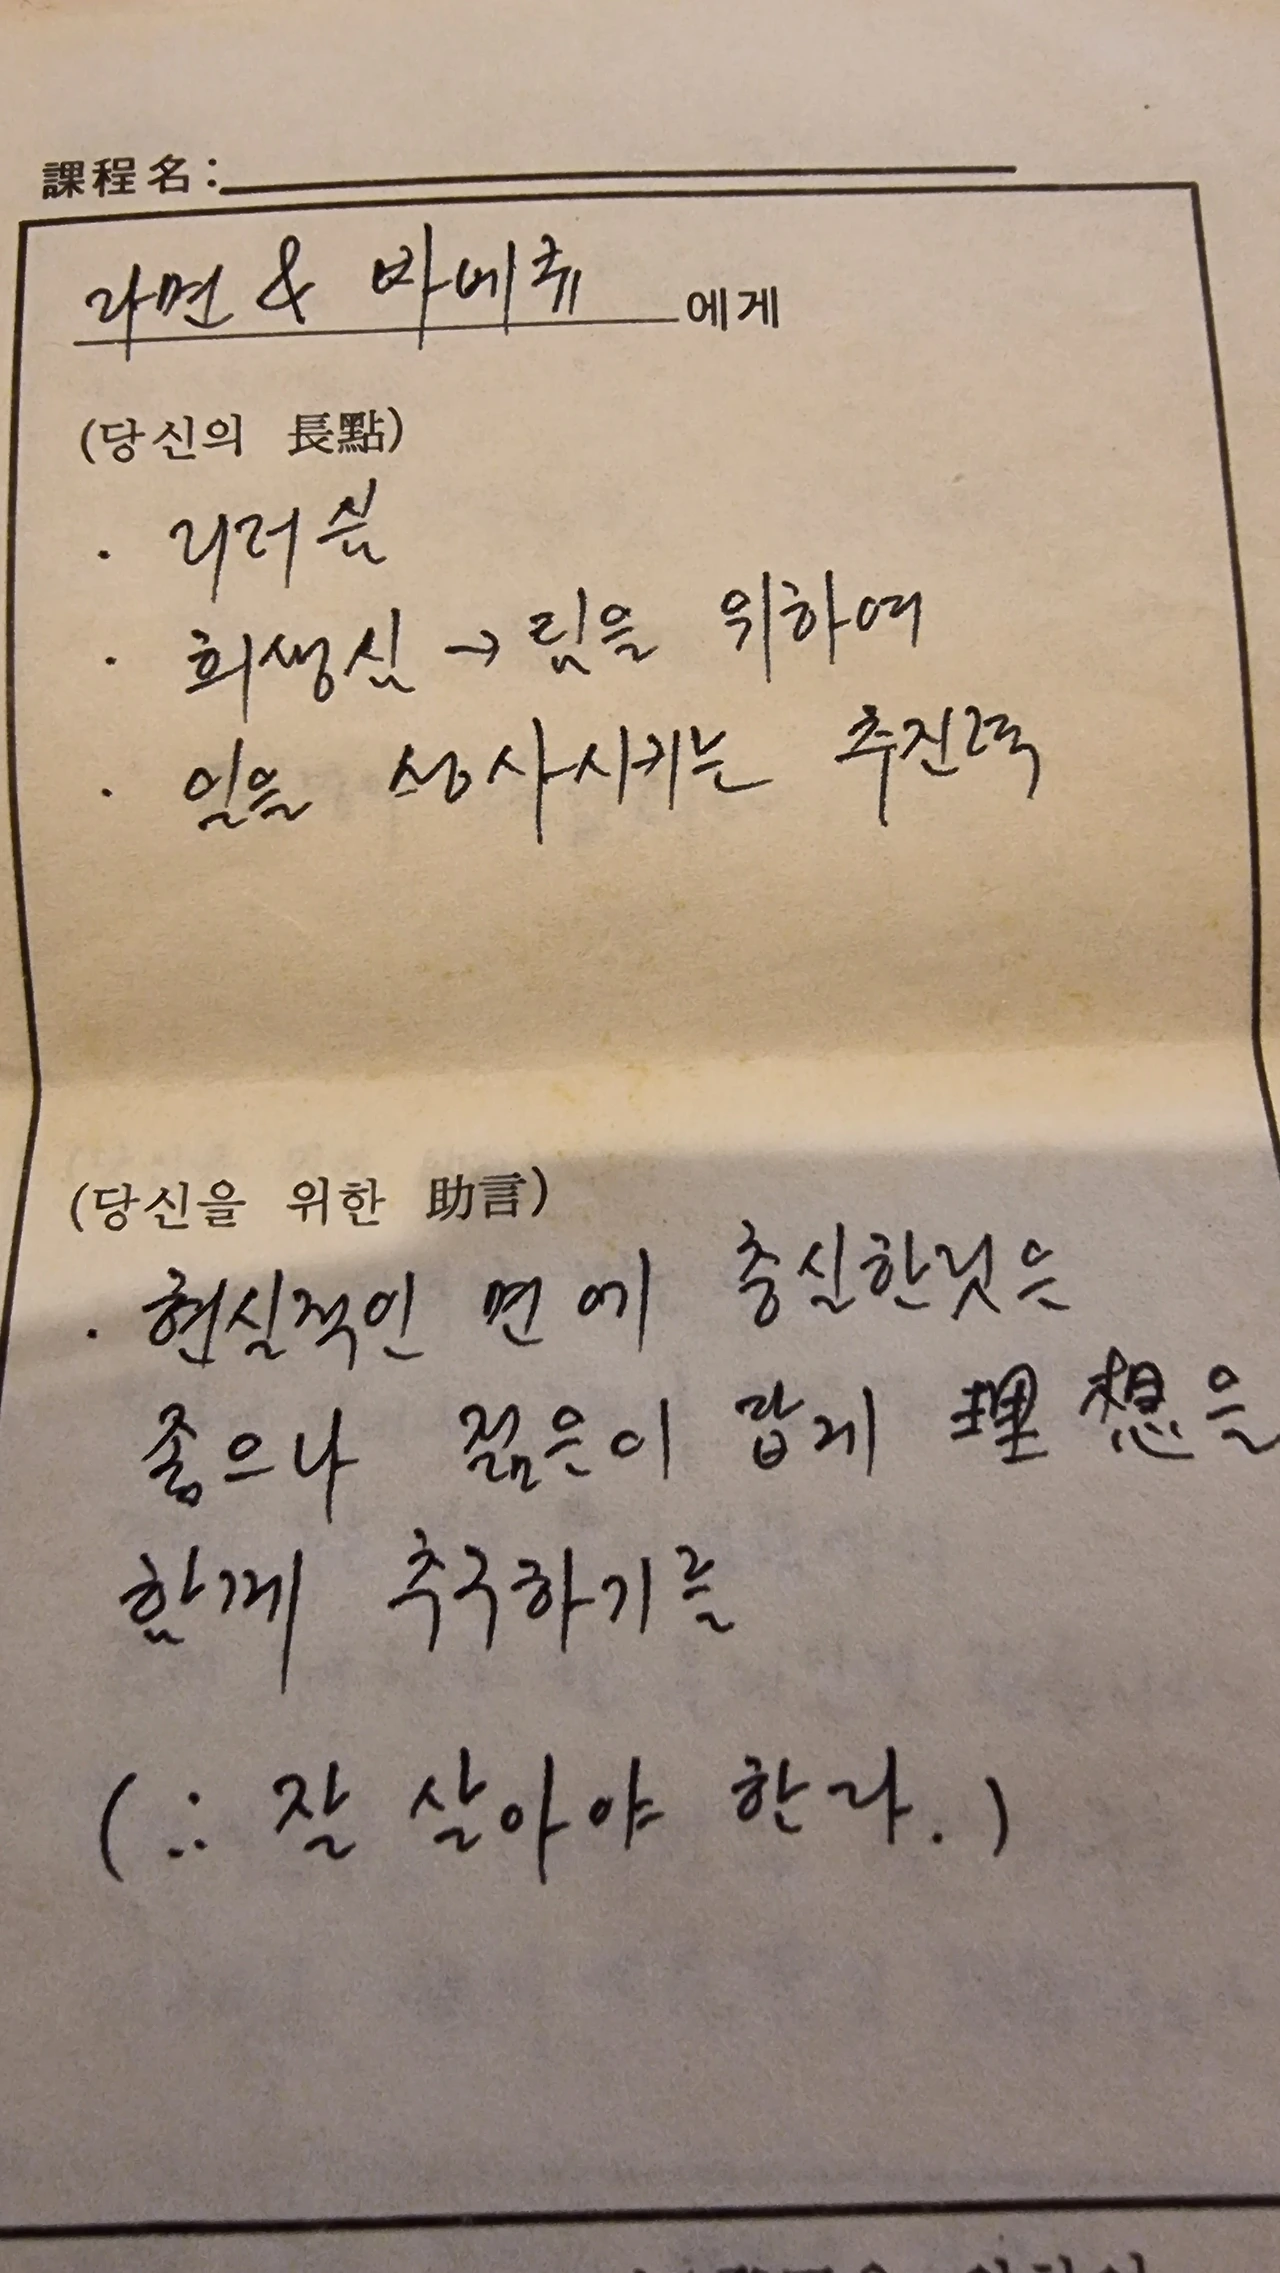 課程名:
라면 & 바베큐 에게
(당신의 長點)
· 리더쉽
· 희생심 → 팀을 위하여
· 일을 성사시키는 추진력
(당신을 위한 助言)
· 현실적인 면에 충실한것은
좋으나 젊은이 답게 理想을
함께 추구하기를
(∴ 잘 살아야 한다.)